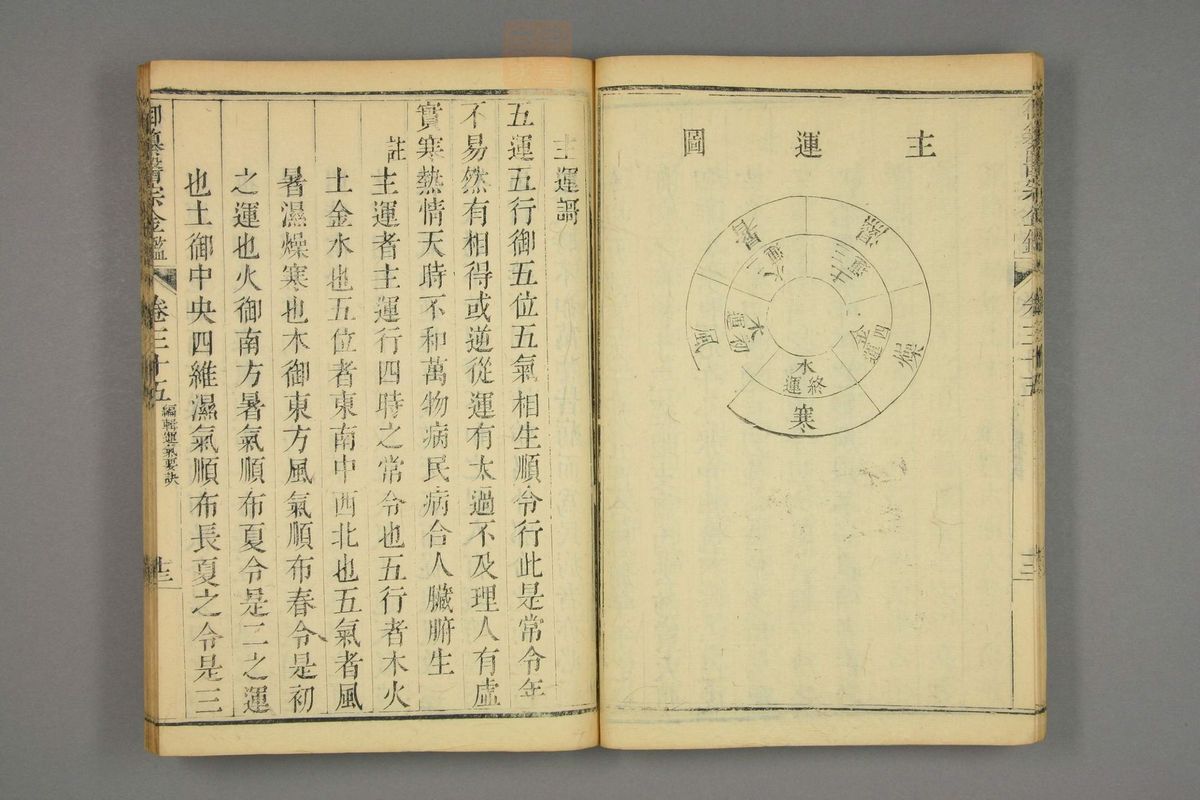 主運圖
濕
土三運
暑
火二運
燥
金四運
風
木初運
水終運
寒
卷三十五
主運謌
五運五行御五位五氣相生順令行此是常令年
不易然有相得或逆從運有太過不及理人有虛
實寒熱情天時不和萬物病民病合人臟腑生
註主運者主運行四時之常令也五行者木火
土金水也五位者東南中西北也五氣者風
暑濕燥寒也木御東方風氣順布春令是初
之運也火御南方暑氣順布夏令是二之運
也土御中央四維濕氣順布長夏之令是三
御纂醫宗金鑑 卷三十五 編輯運氣要訣